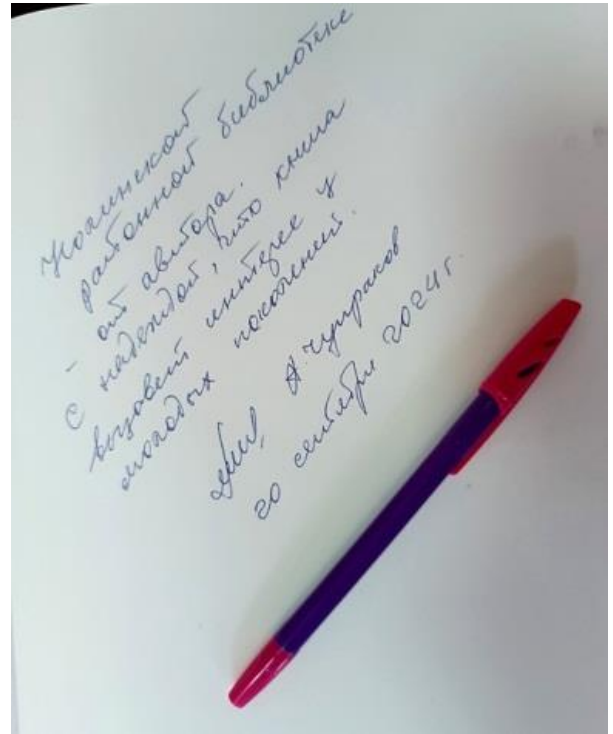 Нолинской
районной библиотеке
- от автора.
С надеждой, что книга
вызовет интерес у
молодых поколений.
А. Чупраков
20 сентября 2024 г.